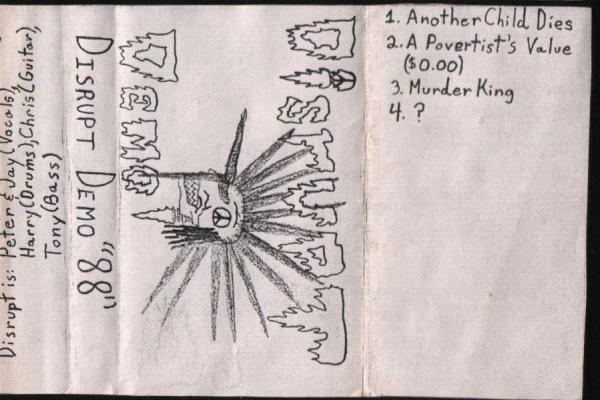 Disrupt is: Peter & Jay (Vocals),
Harry (Drums), Chris (Guitar),
Tony (Bass)
DISRUPT DEMO "88"
DiSRUPT
DeMO
1. Another Child Dies
2. A Povertist's Value
($0.00)
3. Murder King
4. ?